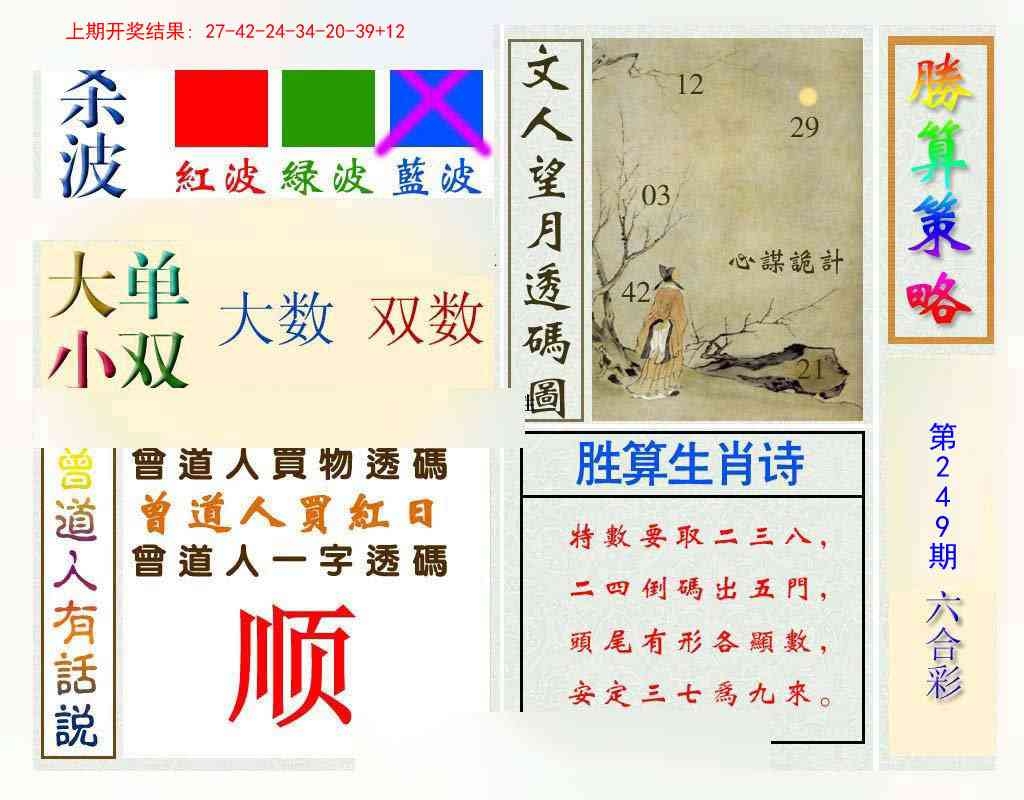 上期开奖结果: 27-42-24-34-20-39+12
杀波
紅波
緑波
藍波
大单
小双
大数
双数
曾道人有話説
曾道人買物透碼
曾道人買紅日
曾道人一字透碼
顺
文人望月透碼圖
12
29
03
心謀詭計
42
21
胜算生肖诗
特數要取二三八,
二四倒碼出五門,
頭尾有形各顯數,
安定三七爲九來。
勝算策略
第249期
六合彩